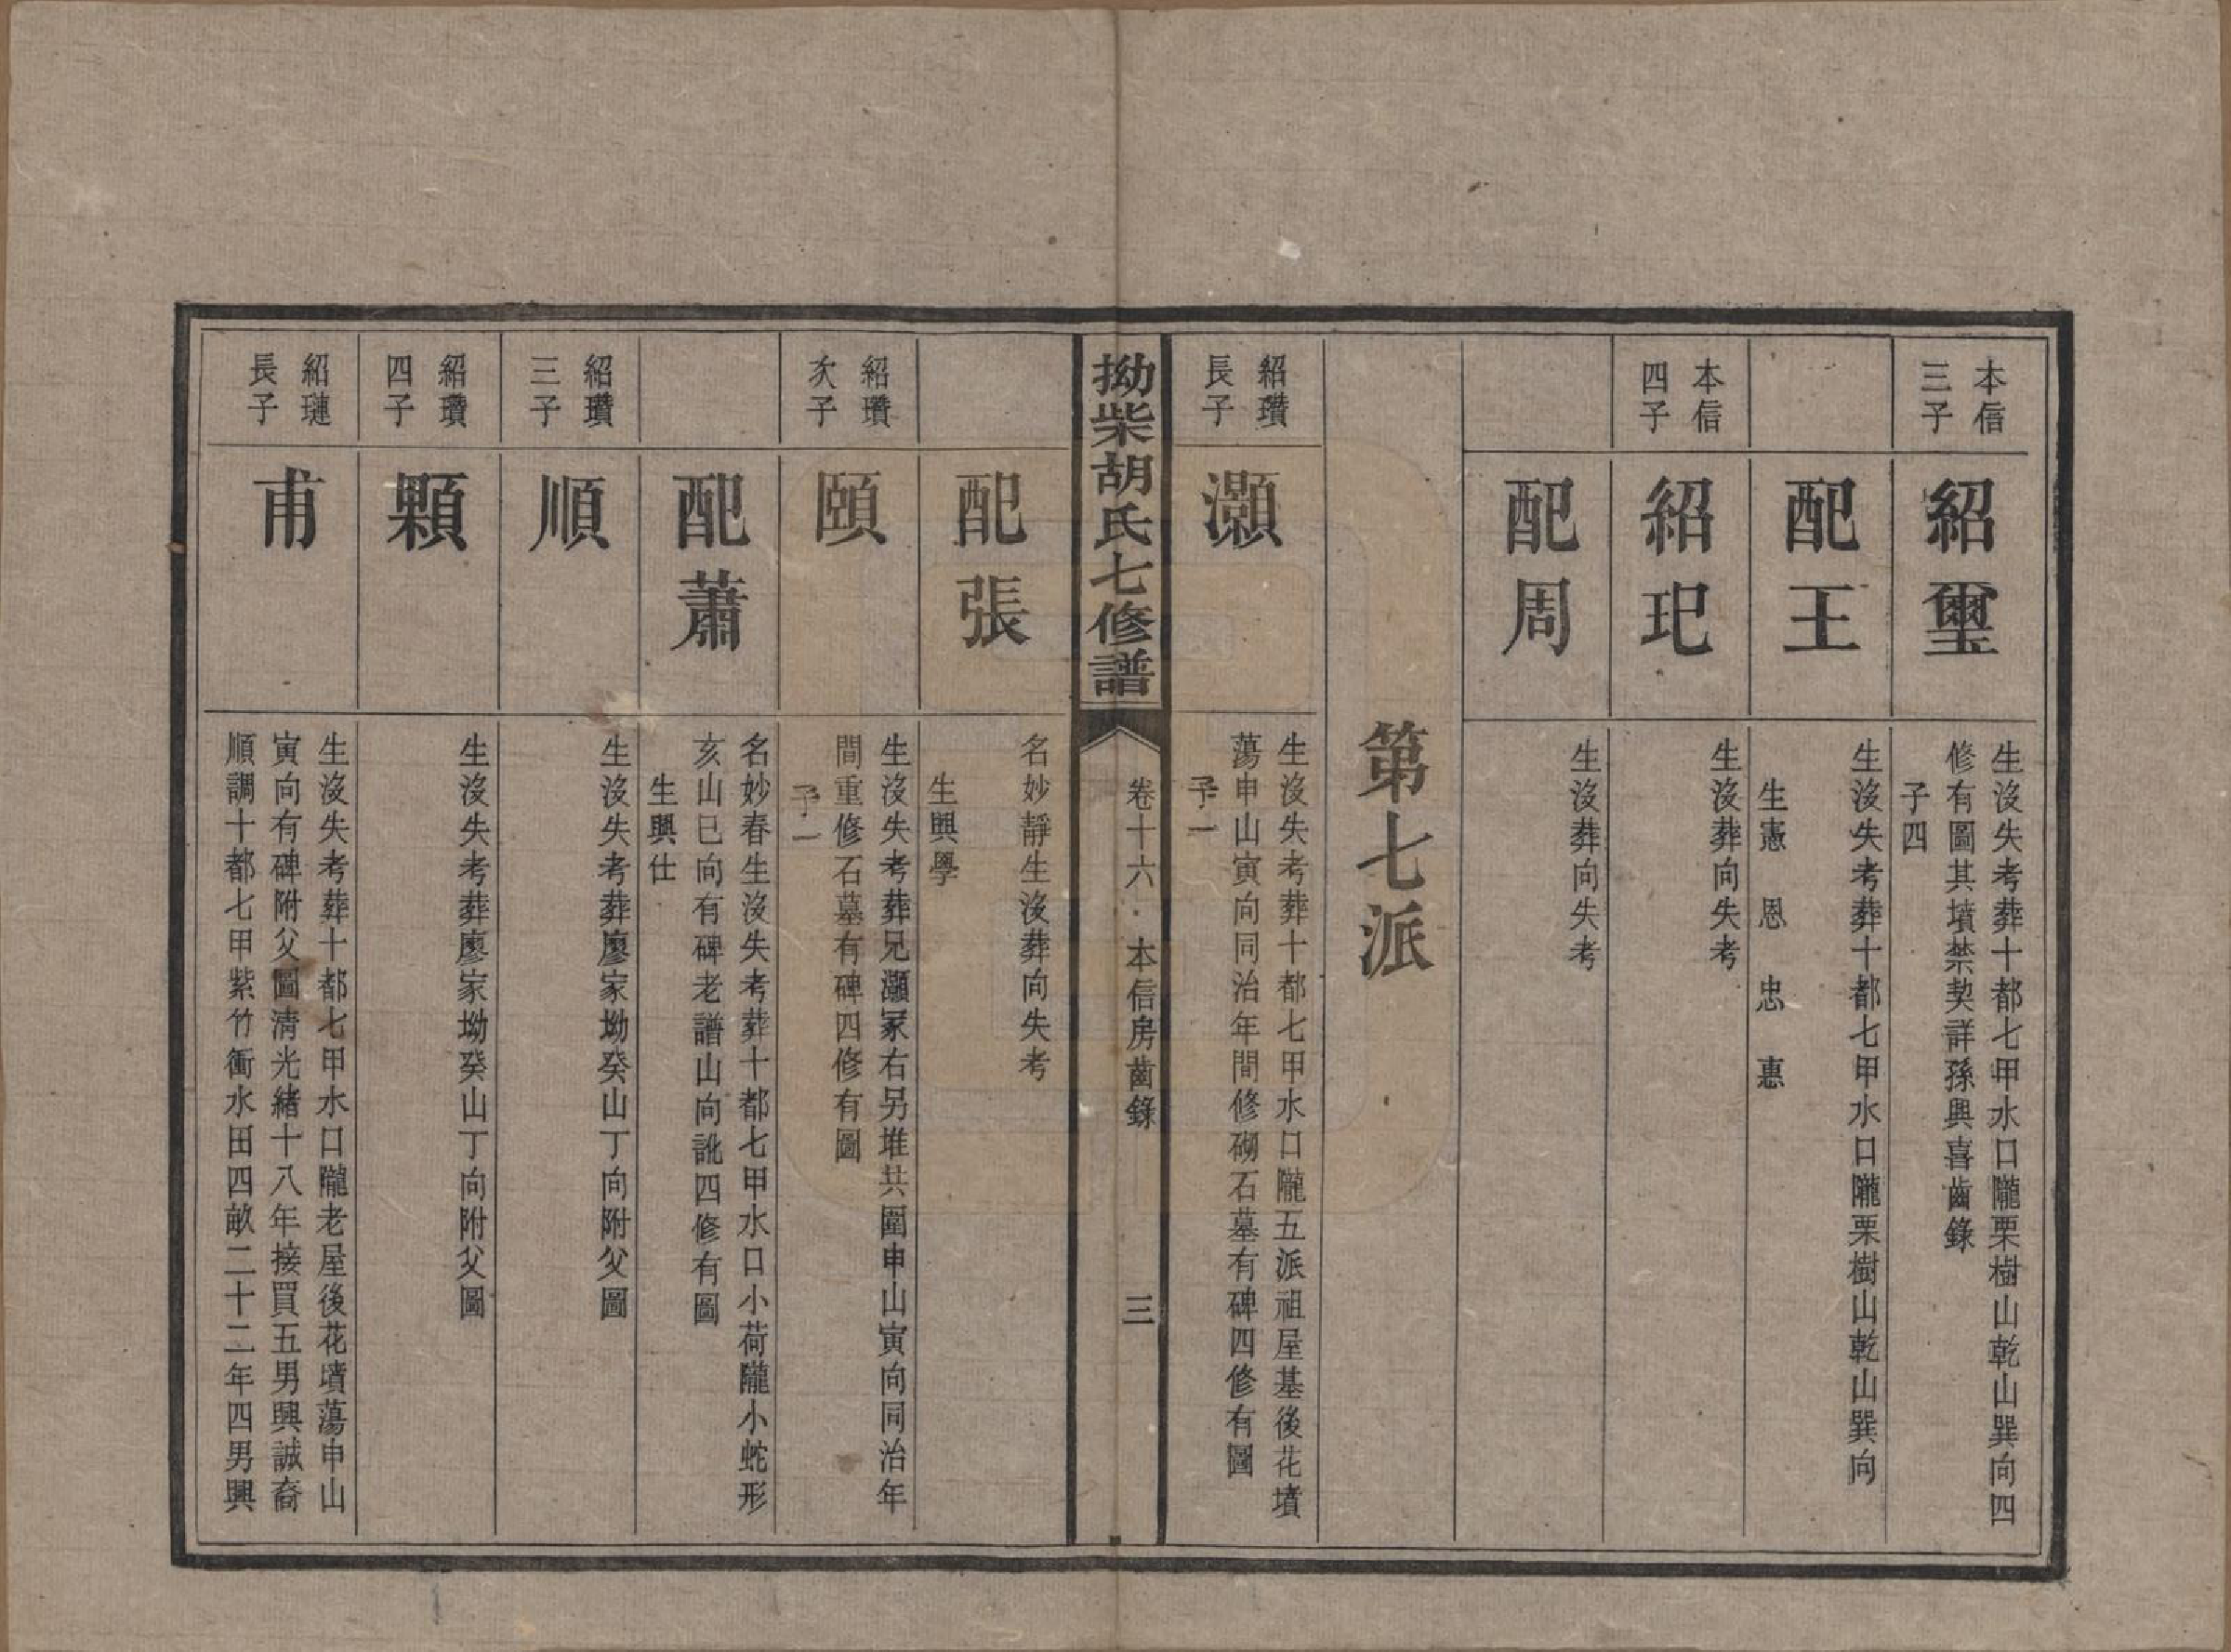 本信
三子
紹璽
生沒失考葬十都七甲水口隴栗樹山乾山巽向四
修有圖其墳禁契詳孫興喜齒錄
子四
配王
生沒失考葬十都七甲水口隴栗樹山乾山巽向
生憲 恩 忠 惠
本信
四子
紹玘
生沒葬向失考
配周
生沒葬向失考
第七派
紹瓚
長子
灝
生沒失考葬十都七甲水口隴五派祖屋基後花墳
蕩申山寅向同治年間修砌石墓有碑四修有圖
子一
拗柴胡氏七修譜
卷十六 本信房齒錄 三
配張
名妙靜生沒葬向失考
生興學
紹瓚
次子
頤
生沒失考葬兄灝冢右另堆共圍申山寅向同治年
間重修石墓有碑四修有圖
子一
配蕭
名妙春生沒失考葬十都七甲水口小荷隴小蛇形
亥山巳向有碑老譜山向訛四修有圖
生興仕
紹瓚
三子
順
生沒失考葬廖家坳癸山丁向附父圖
紹瓚
四子
顆
生沒失考葬廖家坳癸山丁向附父圖
紹璉
長子
甫
生沒失考葬十都七甲水口隴老屋後花墳蕩申山
寅向有碑附父圖清光緒十八年接買五男興誠裔
順調十都七甲紫竹衝水田四畝二十二年四男興